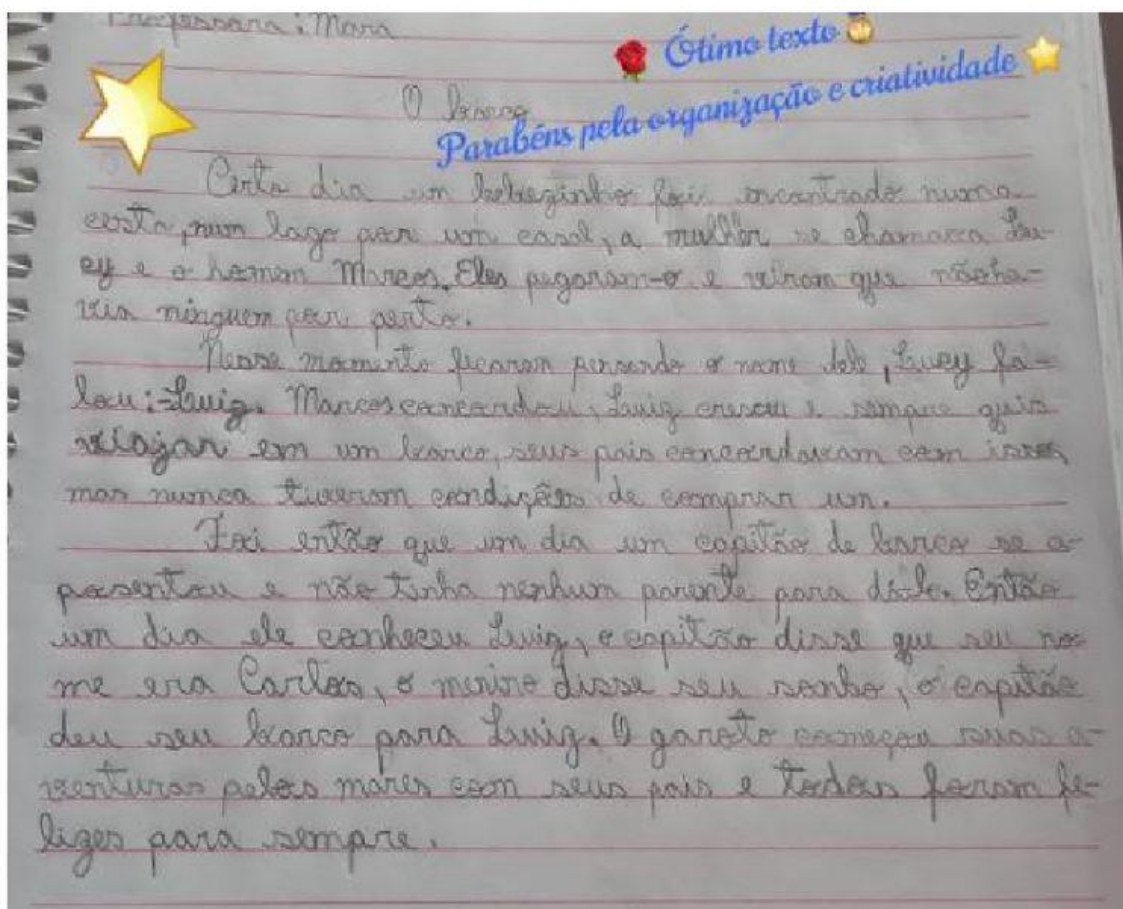 Professora: Mara
Ótimo texto
O barco
Parabéns pela organização e criatividade
Certo dia um bebezinho foi encontrado numa
cesta, num lago por um casal, a mulher se chamava Lu-
cy e o homem Marcos. Eles pegaram-o e viram que não ha-
via ninguem por perto.
Nesse momento ficaram pensando o nome dele, Lucy fa-
lou:-Luiz. Marcos concordou, Luiz cresceu e sempre quis
viajar em um barco, seus pais concordavam com isso,
mas nunca tiveram condições de comprar um.
Foi então que um dia um capitão de barco se a-
posentou e não tinha nenhum parente para dá-lo. Então
um dia ele conheceu Luiz, o capitão disse que seu no-
me era Carlos, o menino disse seu sonho, o capitão
deu seu barco para Luiz. O garoto começou suas a-
venturas pelos mares com seus pais e todos foram fe-
lizes para sempre.